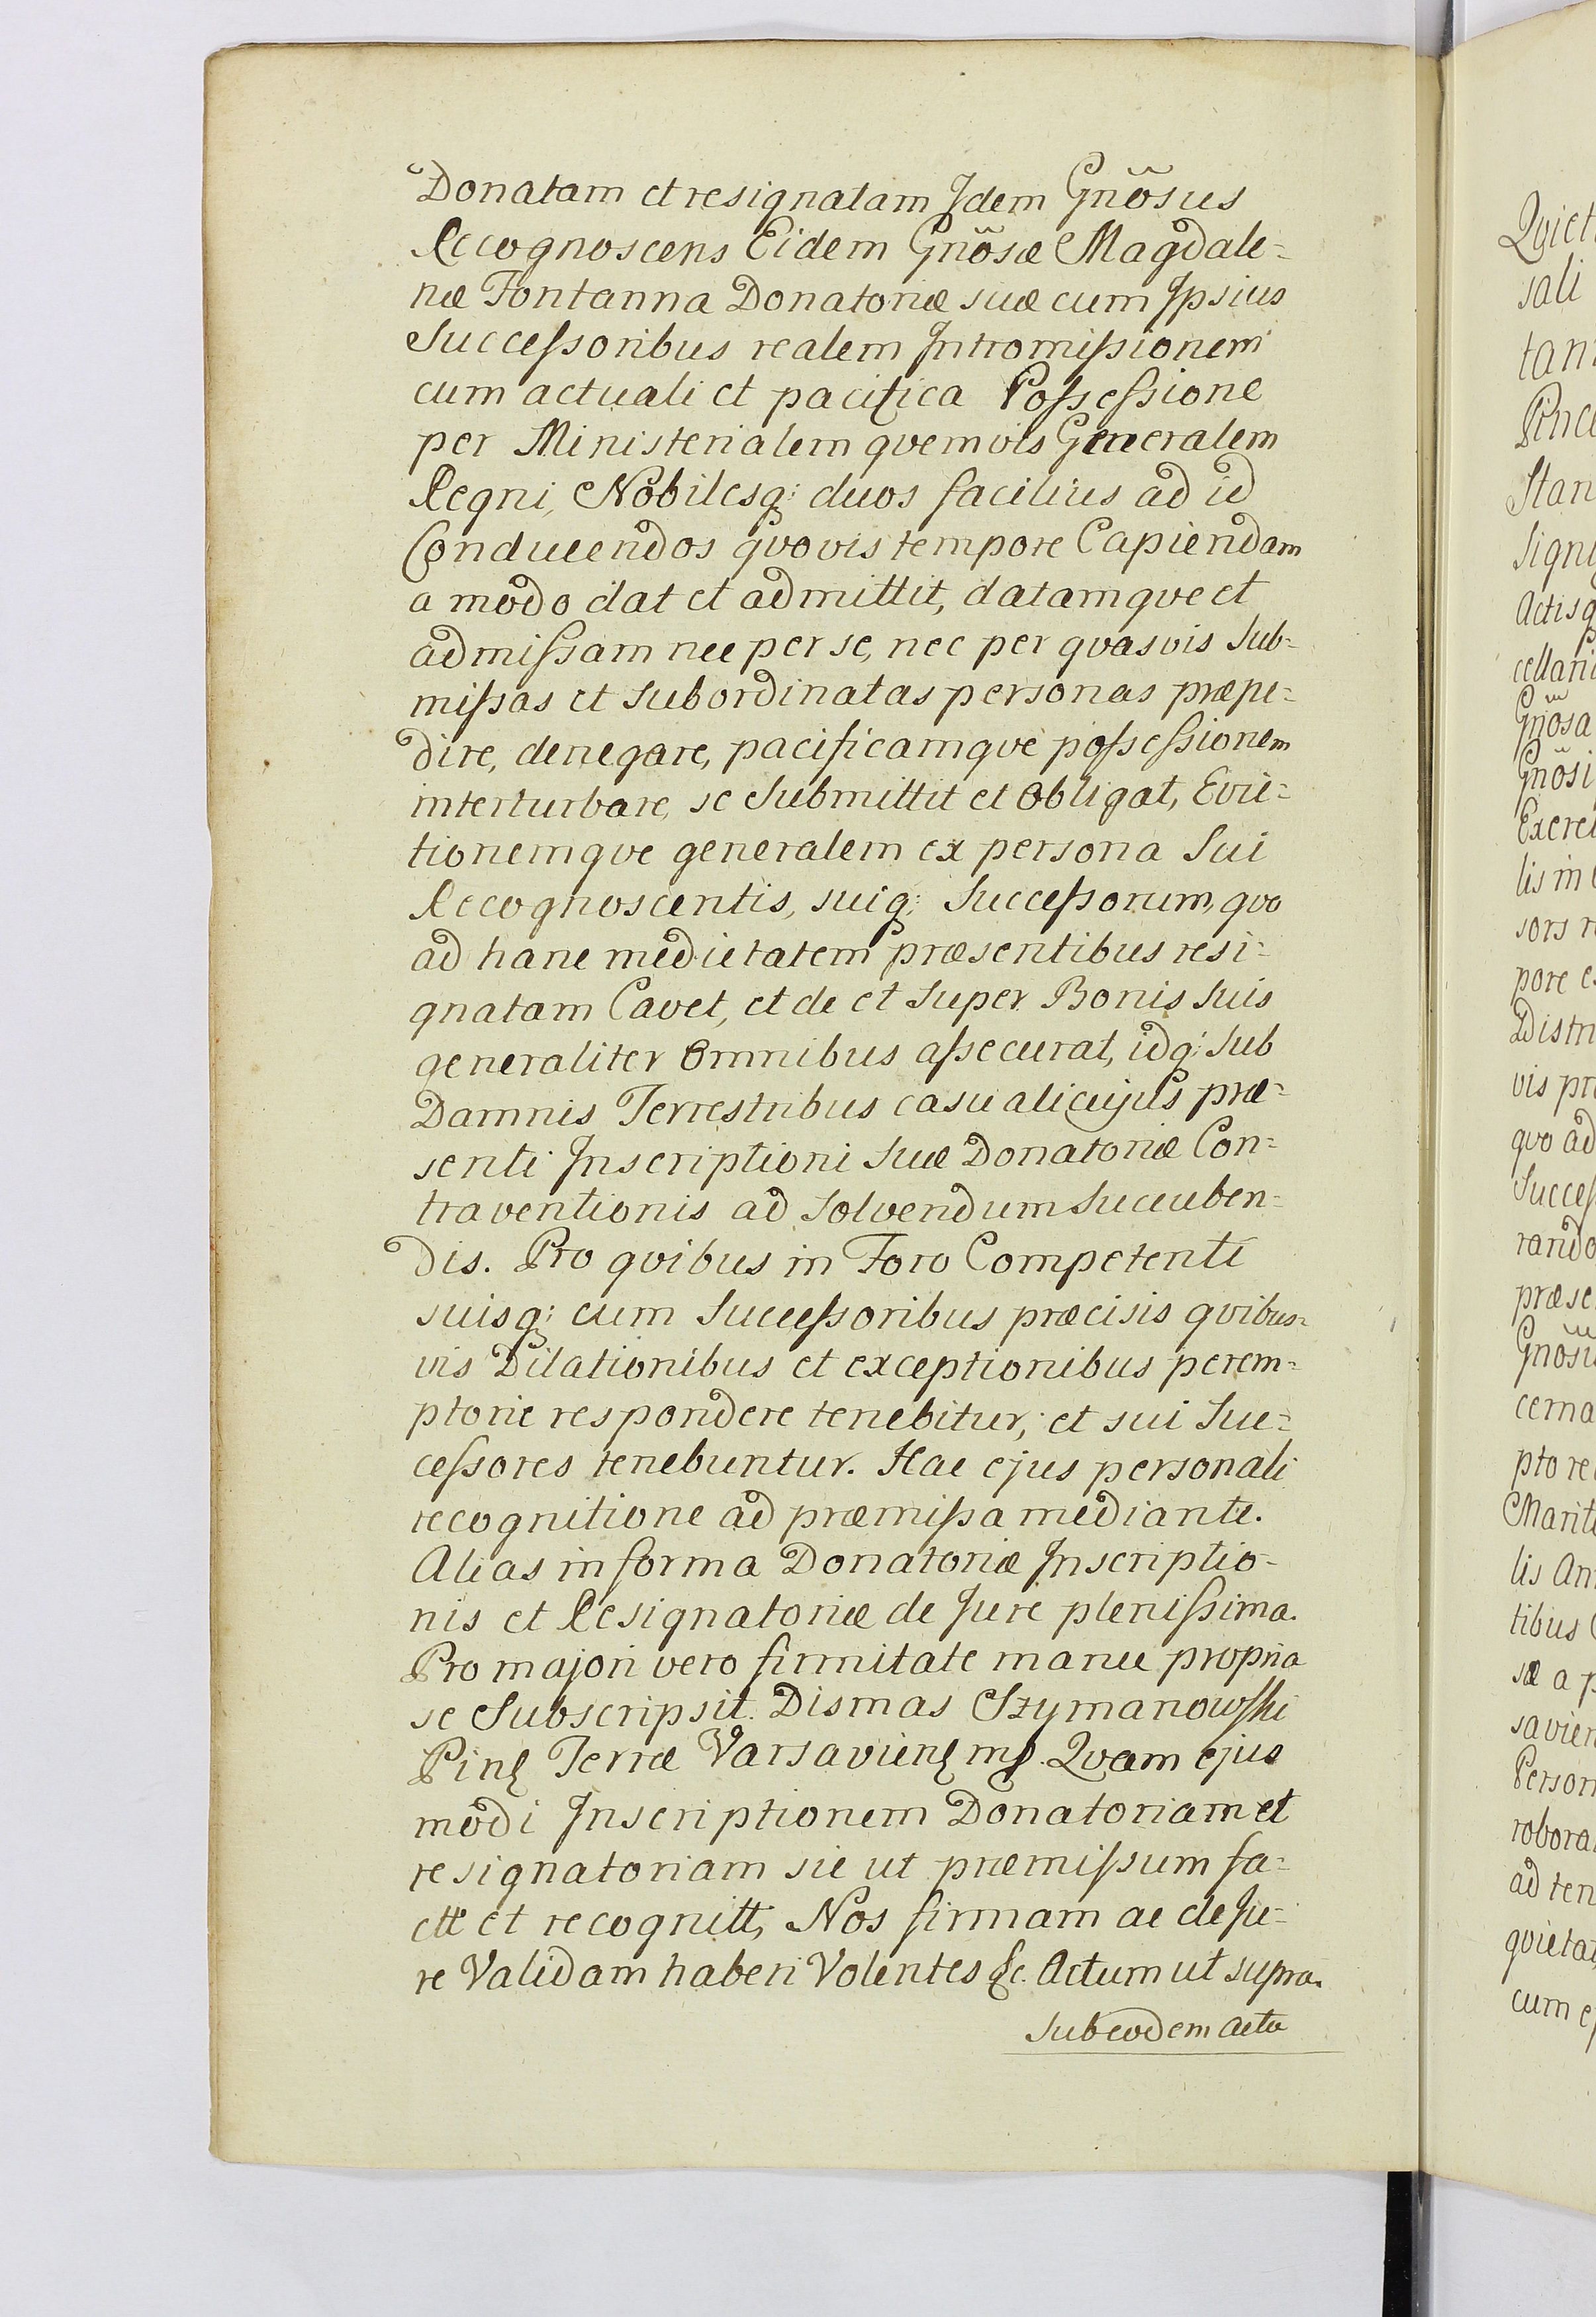 Donatam et resignatam Idem Gñosus
Recognoscens Eidem Gñosæ Magdale=
næ Fontanna Donatoriæ suæ cum Ipsius
Successoribus realem Intromissionem
cum actuali et pacifica Possessione
per Ministerialem qvemvis Generalem
Regni, Nobilesq; duos facilius ad id
Conducendos qvovis tempore Capiendam
a modo dat et admittit, datamqve et
admissam nec per se, nec per qvasvis Sub=
missas et Subordinatas personas præpe=
dire, denegare, pacificamqve possessionem
interturbare, se Submittit et Obligat, Evic=
tionemqve generalem ex persona Sui
Recognoscentis, suiq; Successorum, qvo
ad hanc medietatem præsentibus resi=
gnatam Cavet, et de et Super Bonis Suis
generaliter Omnibus assecurat, idq; Sub
Damnis Terrestribus casu alicujus præ=
senti Inscriptioni Suæ Donatoriæ Con=
traventionis ad Solvendum Succuben=
dis. Pro qvibus in Foro Competenti
suisq; cum Successoribus præcisis qvibus=
vis Dilationibus et exceptionibus perem=
ptorie respondere tenebitur, et sui Suc=
cessores tenebuntur. Hac ejus personali
recognitione ad præmissa mediante.
Alias in forma Donatoriæ Inscriptio=
nis et Resignatoriæ de Jure plenissima.
Pro majori vero firmitate manu propria
se Subscripsit. Dismas Szymanowski
Pinc Terræ Varsavienę mp. Qvam ejus
modi Inscriptionem Donatoriam et
resignatoriam sic ut præmissum fa=
ctt et recognitt, Nos firmam ac de Ju=
re Validam haberi Volentes &c. Actum ut supra.
Sub eodem Actu
Qviet
sali
tan
Stan
Signi
Actisq
cellari
Gñosa
Gñosi
Exerci
lis in
sors r
pore e
Distri
vis pr
qvo ad
Succes
rando
præse
Gñosu
cerna
pto re
Marit
lis An
tibus
sæ a p
savien
Person
robora
ad ten
qvieta
cum e